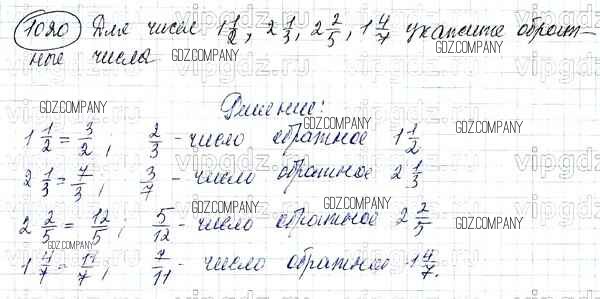 1020 Для чисел 1 1/2, 2 1/3, 2 2/5, 1 4/7 укажите обрат-
ные числа
Решение:
1 1/2 = 3/2; 2/3 - число обратное 1 1/2
2 1/3 = 7/3; 3/7 - число обратное 2 1/3
2 2/5 = 12/5; 5/12 - число обратное 2 2/5
1 4/7 = 11/7; 7/11 - число обратное 1 4/7.
GDZ.COMPANY
vipgdz